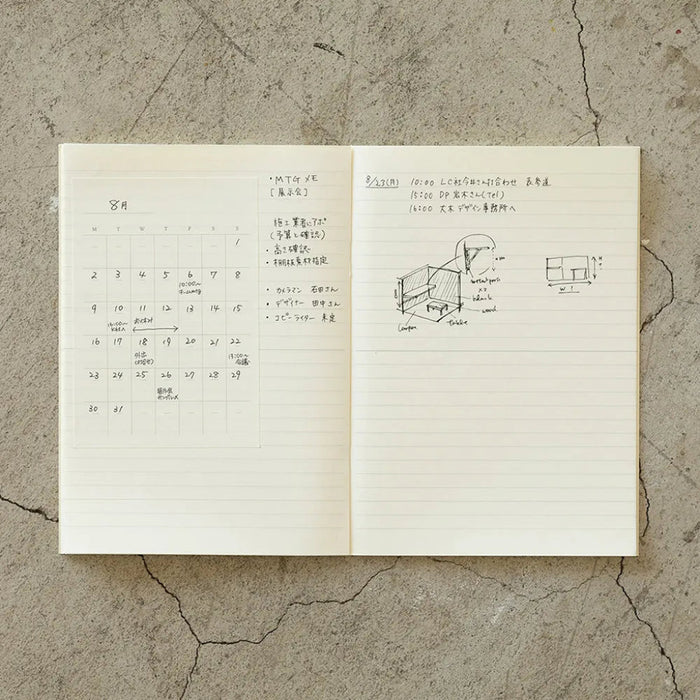 8月
M T W T F S S
1
2 3 4 5 6 7 8
10:00〜
9 10 11 12 13 14 15
お休み
16 17 18 19 20 21 22
外出
13:00〜
会議
23 24 25 26 27 28 29
30 31
・MTG メモ
[展示会]
施工業者にアポ
(予算と確認)
・高さ確認
・棚板素材指定
・カメラマン 石田さん
・デザイナー 田中さん
・コピーライター 未定
8/23(月) 10:00 LC社今井さん打合わせ 表参道
15:00 DP 岩木さん(Tel)
16:00 大木デザイン事務所へ
wood
table
W
H